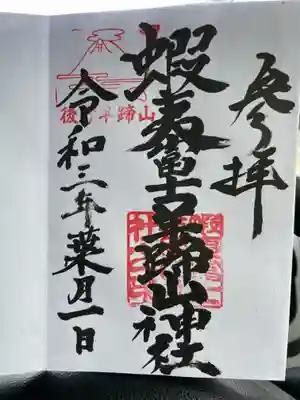 参拝
蝦夷富士羊蹄山神社
後方羊蹄山
令和三年葉月一日